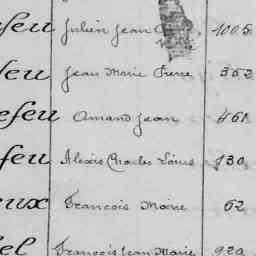 feu Julien Jean 1005
feu Jean Marie Pierre 352
efeu Amand Jean 461
feu Alexis Charles Louis 830
eux Francois Marie 62
el Francois Jean Marie 920